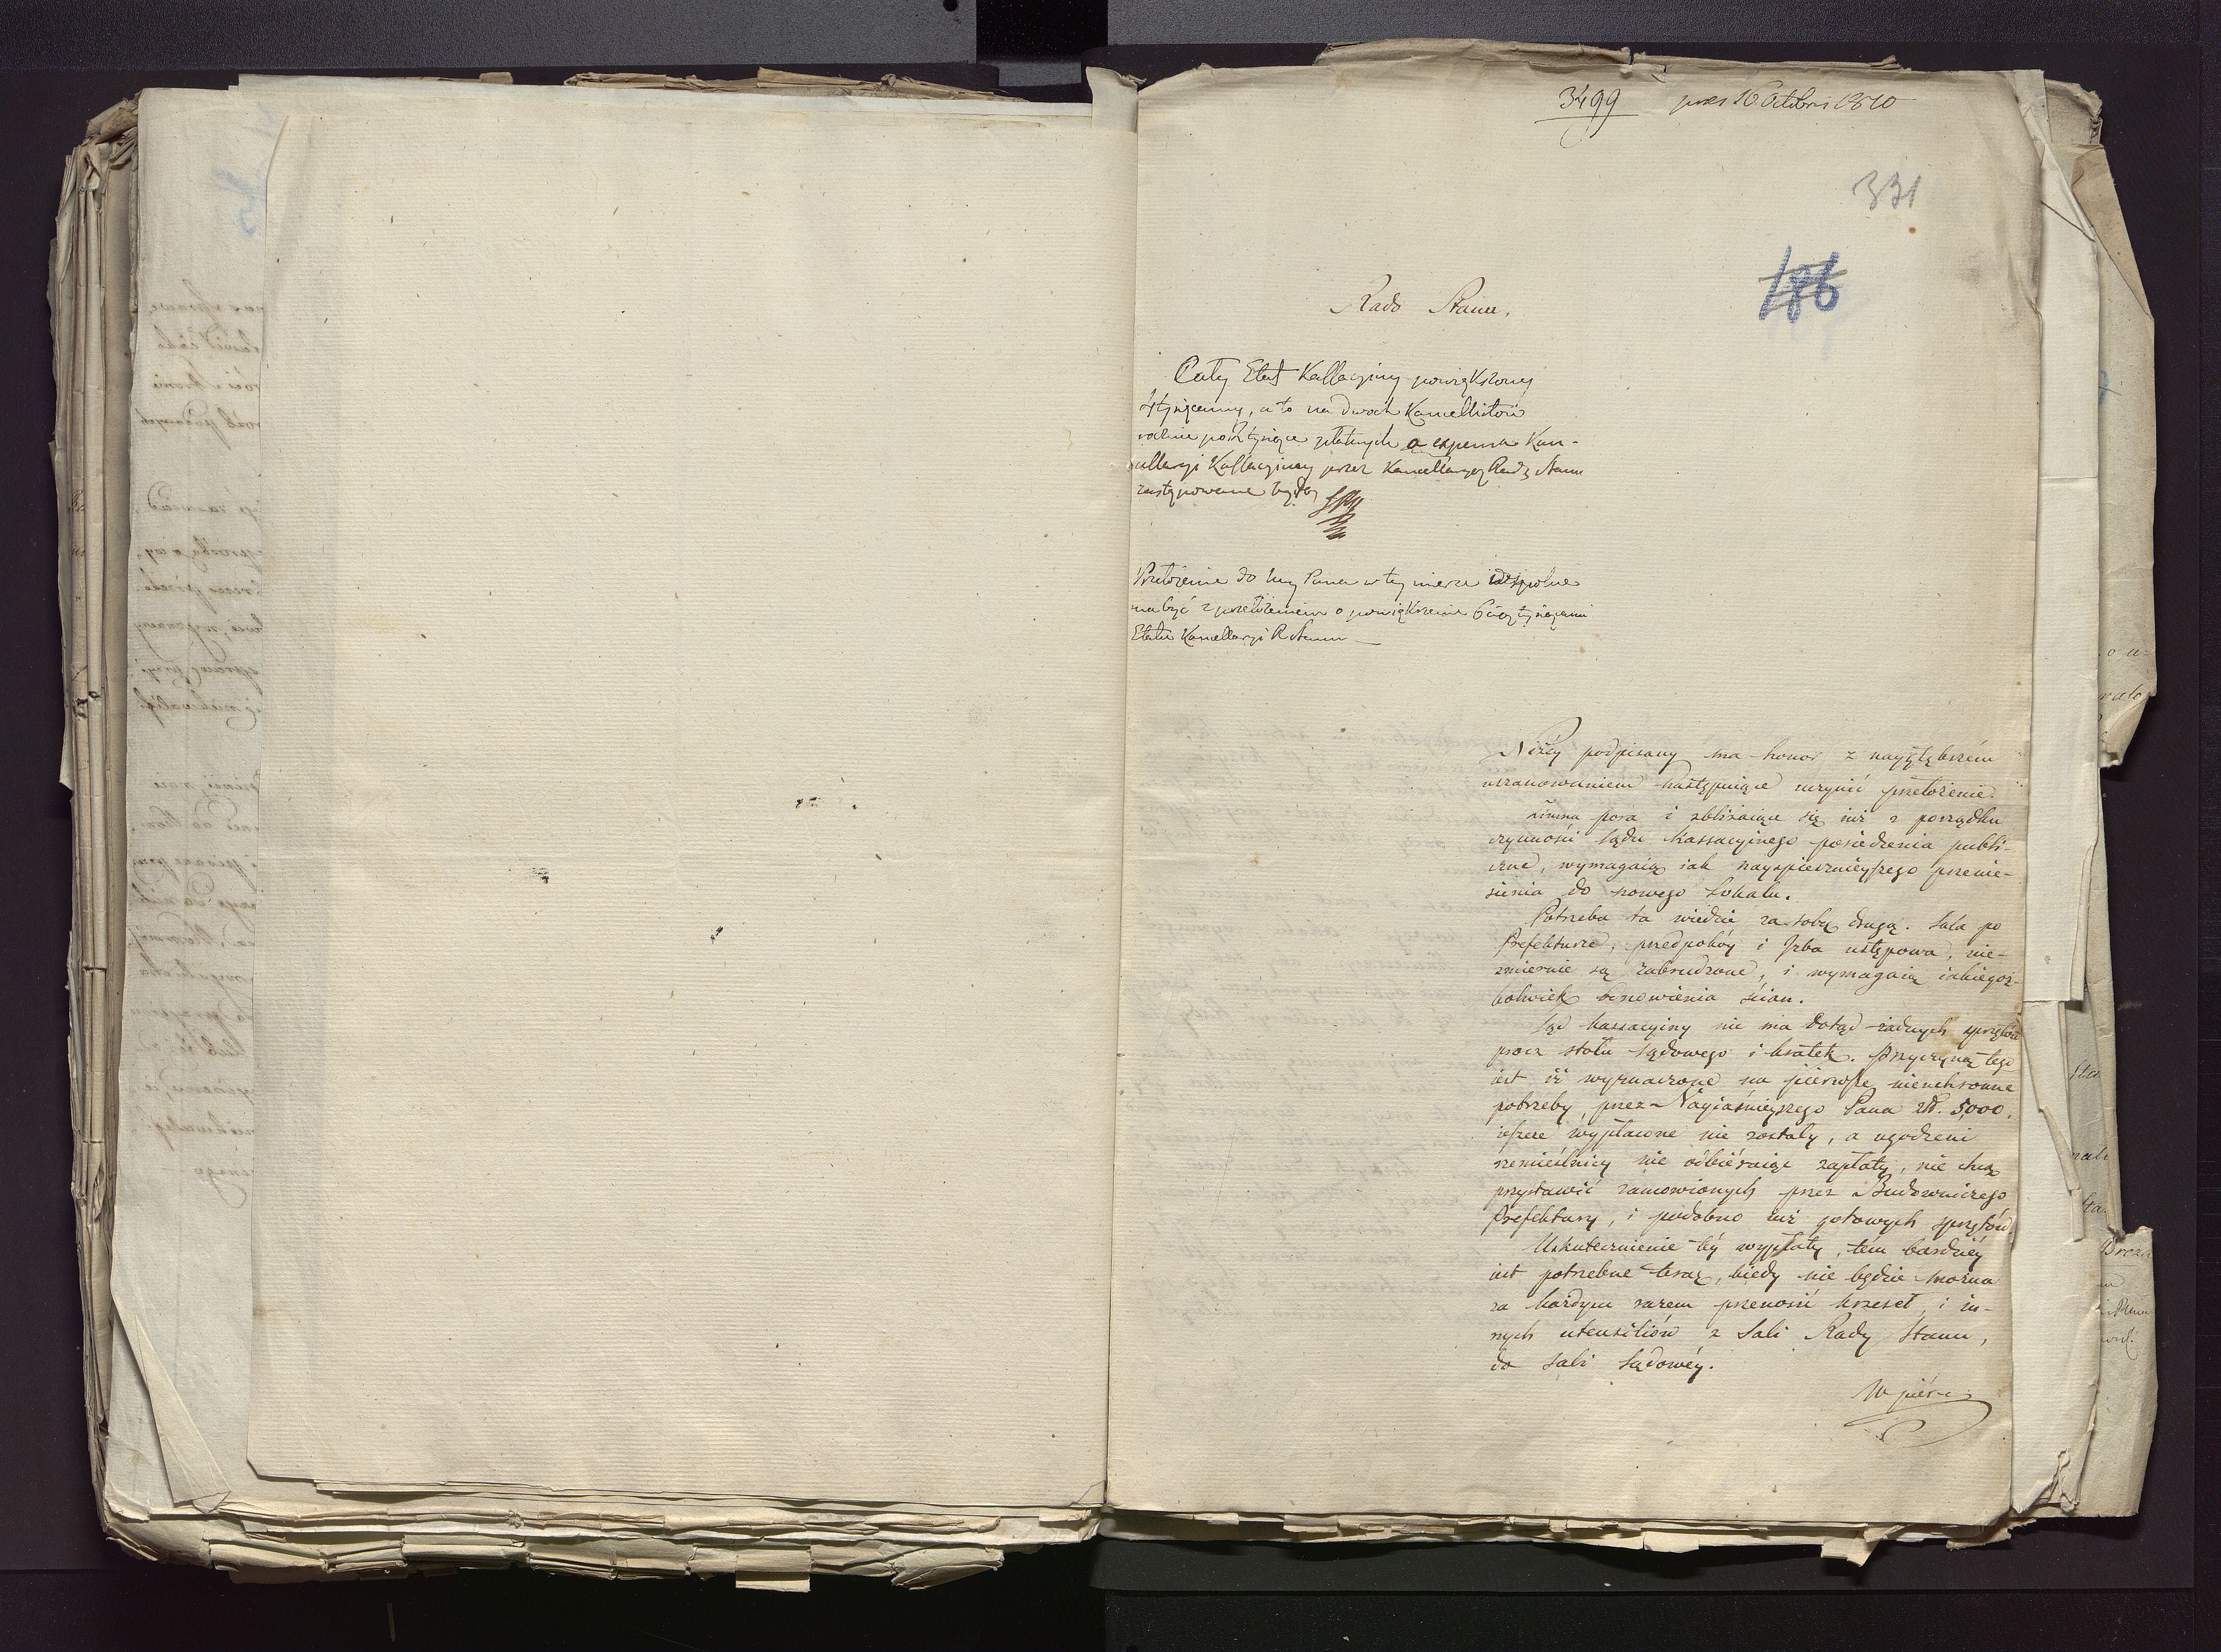 3499 pres 16 Octobris 1810
331
186
Rado Stanu,
Cały Etat Kassacyiny powiększony
4 tysięcamy, a to na dwóch Kancellistów
rocznie po 2 tysiące płatnych a expensa Kan-
cellaryi Kassacyiney przez Kancellaryę Rady Stanu
zastępowane będą
Przełożenie do Nay Pana w tey mierze wespolne
ma być z przełożeniem o powiększenie 6cią tysiącami
Etatu Kancellaryi R Stanu —
Niżéy podpisany ma honor z naygłębszém
uszanowaniem następuiące uczynić przełożenie.
Zimna pora i zbliżaiące się iuż z porządku
czynności Sądu Kassacyinego posiedzenia publi-
czne, wymagaią iak nayspieszniéyszego przenie-
sienia do nowego Lokalu.
Potrzeba ta wiedzie za sobą drugą. Sala po
Prefekturze, przedpokóy i Izba ustępowa, nie-
zmiernie są zabrudzone, i wymagaią iakiegoż-
kolwiek odnowienia ścian.
Sąd Kassacyiny nie ma dotąd żadnych sprzętów
prócz stołu sądowego i kratek. Przyczyną tego
iest iż wyznaczone na pierwsze nieuchronne
potrzeby, przez Nayiaśnieyszego Pana zł. 5,000.
ieszcze wypłacone nie zostały, a ugodzeni
rzemieślnicy nie odbiéraiąc zapłaty, nie chcą
przystawić zamowionych przez Budowniczego
Prefektury, i podobno iuż gotowych sprzętów.
Uskutecznienie téy wypłaty, tém bardziéy
iest potrzebne teraz, kiedy nie będzie można
za każdym razem przenosić krzeseł, i in-
nych utensiliów z Sali Rady Stanu,
do Sali Sądowéy.